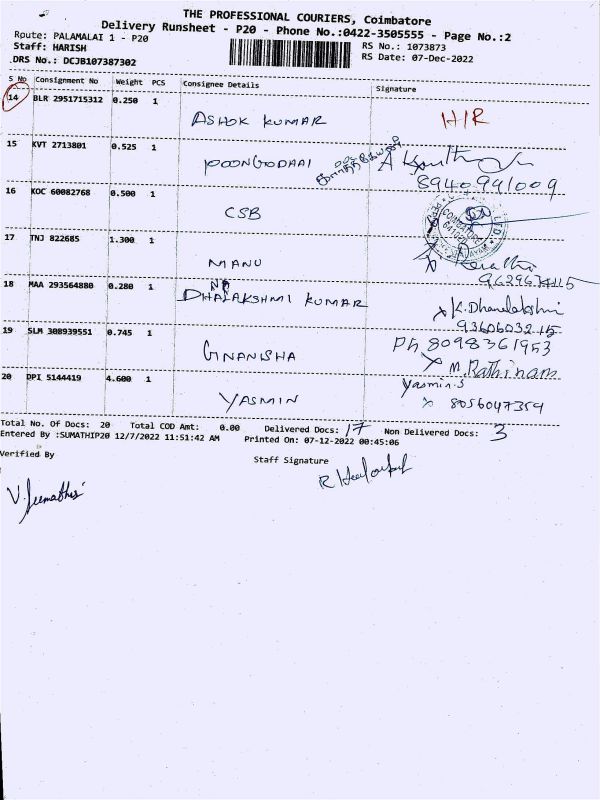 THE PROFESSIONAL COURIERS, Coimbatore
Delivery Runsheet - P20 - Phone No.:0422-3505555 - Page No.:2
Route: PALAMALAI 1 - P20
RS No.: 1073873
Staff: HARISH
RS Date: 07-Dec-2022
DRS No.: DCJB107387302
S No Consignment No Weight PCS Consignee Details Signature
14 BLR 2951715312 0.250 1
ASHOK KUMAR H/R
15 KVT 2713801 0.525 1
POONGODAAI
8940991009
16 KOC 60082768 0.500 1
CSB
17 TNJ 822685 1.300 1
MANU
9629674115
18 MAA 293564880 0.280 1
DHANALAKSHMI KUMAR
K. Dhanalakshmi
9360603215
19 SLM 308939551 0.745 1
Ph 8098361953
GNANISHA
M. Rathinam
20 DPI 5144419 4.600 1
Yasmin.S
YASMIN
8056047359
Total No. Of Docs: 20 Total COD Amt: 0.00 Delivered Docs: 17 Non Delivered Docs: 3
Entered By :SUMATHIP20 12/7/2022 11:51:42 AM Printed On: 07-12-2022 00:45:06
Verified By Staff Signature